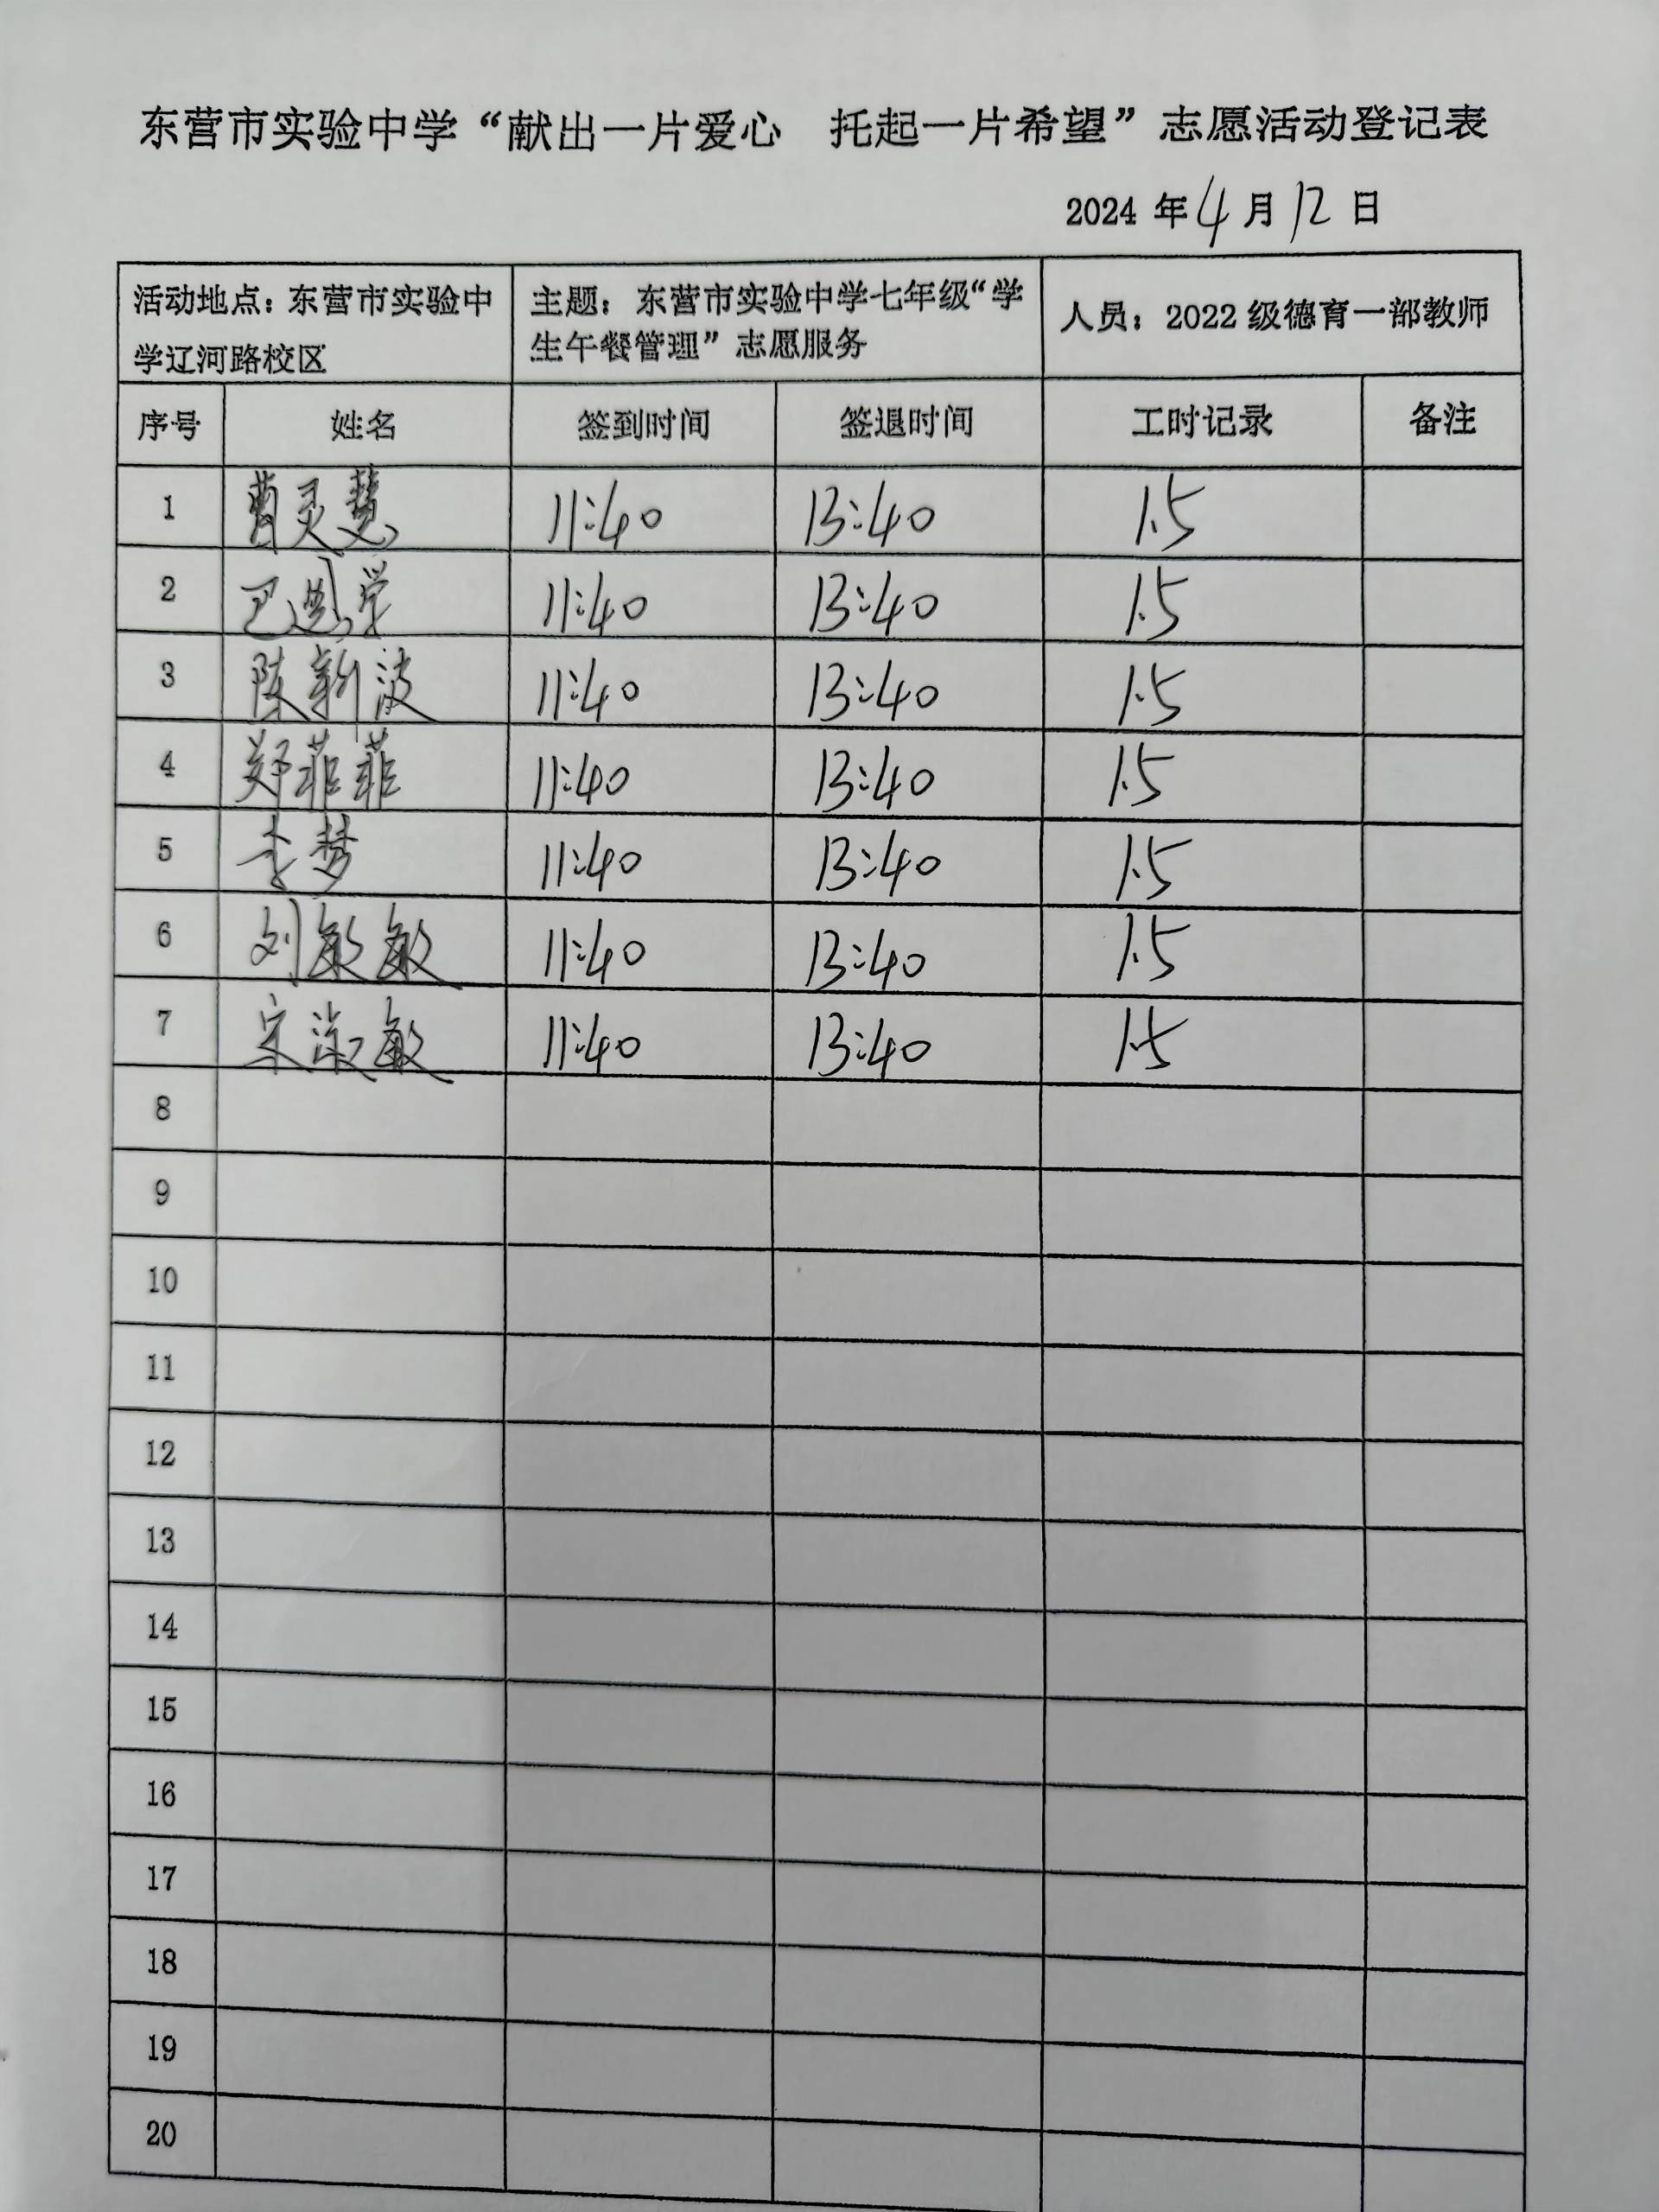 东营市实验中学“献出一片爱心　托起一片希望”志愿活动登记表
2024 年 4 月 12 日
活动地点：东营市实验中
学辽河路校区
主题：东营市实验中学七年级“学
生午餐管理”志愿服务
人员：2022 级德育一部教师
序号 姓名 签到时间 签退时间 工时记录 备注
1 曹灵慧 11:40 13:40 1.5
2 11:40 13:40 1.5
3 陈新波 11:40 13:40 1.5
4 郑菲菲 11:40 13:40 1.5
5 李梦 11:40 13:40 1.5
6 刘敏敏 11:40 13:40 1.5
7 宋淑敏 11:40 13:40 1.5
8
9
10
11
12
13
14
15
16
17
18
19
20